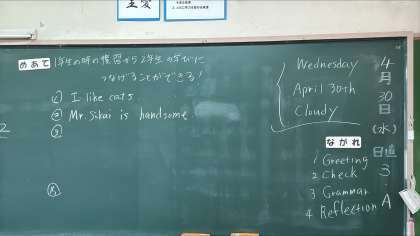 主愛
めあて 1年生の時の復習から2年生の学びに
つなげることができる!
① I like cats.
② Mr. Sikai is handsome
③
2
Wednesday
April 30th
Cloudy
ながれ
1 Greeting
2 Check
3 Grammar
4 Reflection
4
月
30
日
(水)
日直
3
A